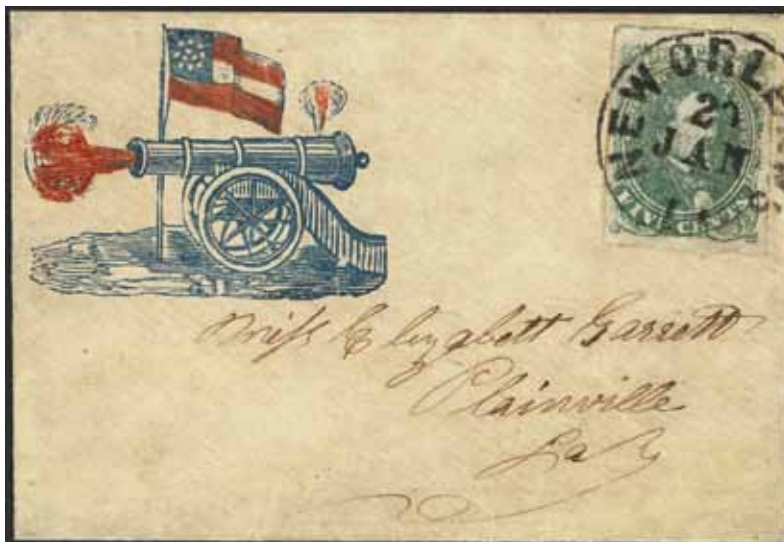 NEW ORLE
2
JAN
FIVE CENTS
Miss Elizabett Garrett
Plainville
La